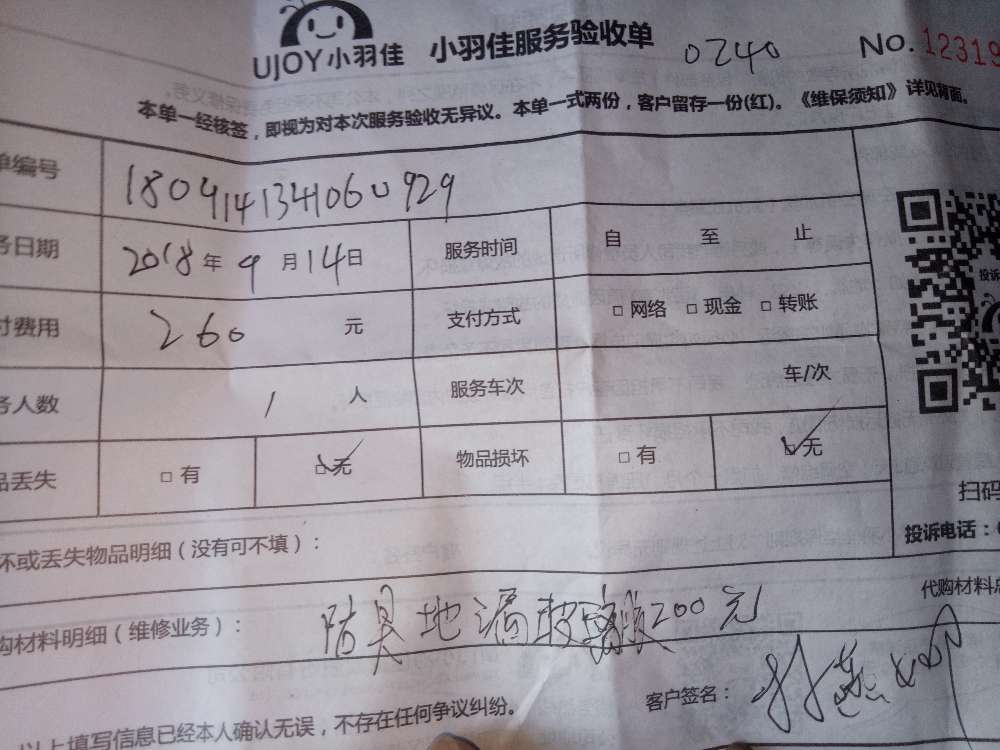 UJOY小羽佳 小羽佳服务验收单 0240 NO.12319
本单一经核签，即视为对本次服务验收无异议。本单一式两份，客户留存一份(红)。《维保须知》详见背面。
单编号 1809141341060929
务日期 2018年9月14日 服务时间 自 至 止
付费用 260 元 支付方式 □网络 □现金 □转账
投诉
务人数 1 人 服务车次 车/次
品丢失 □有 □无 物品损坏 □有 □无
扫码
投诉电话：
坏或丢失物品明细（没有可不填）：
代购材料总
购材料明细（维修业务）： 防臭地漏 200元
客户签名：
以上填写信息已经本人确认无误，不存在任何争议纠纷。